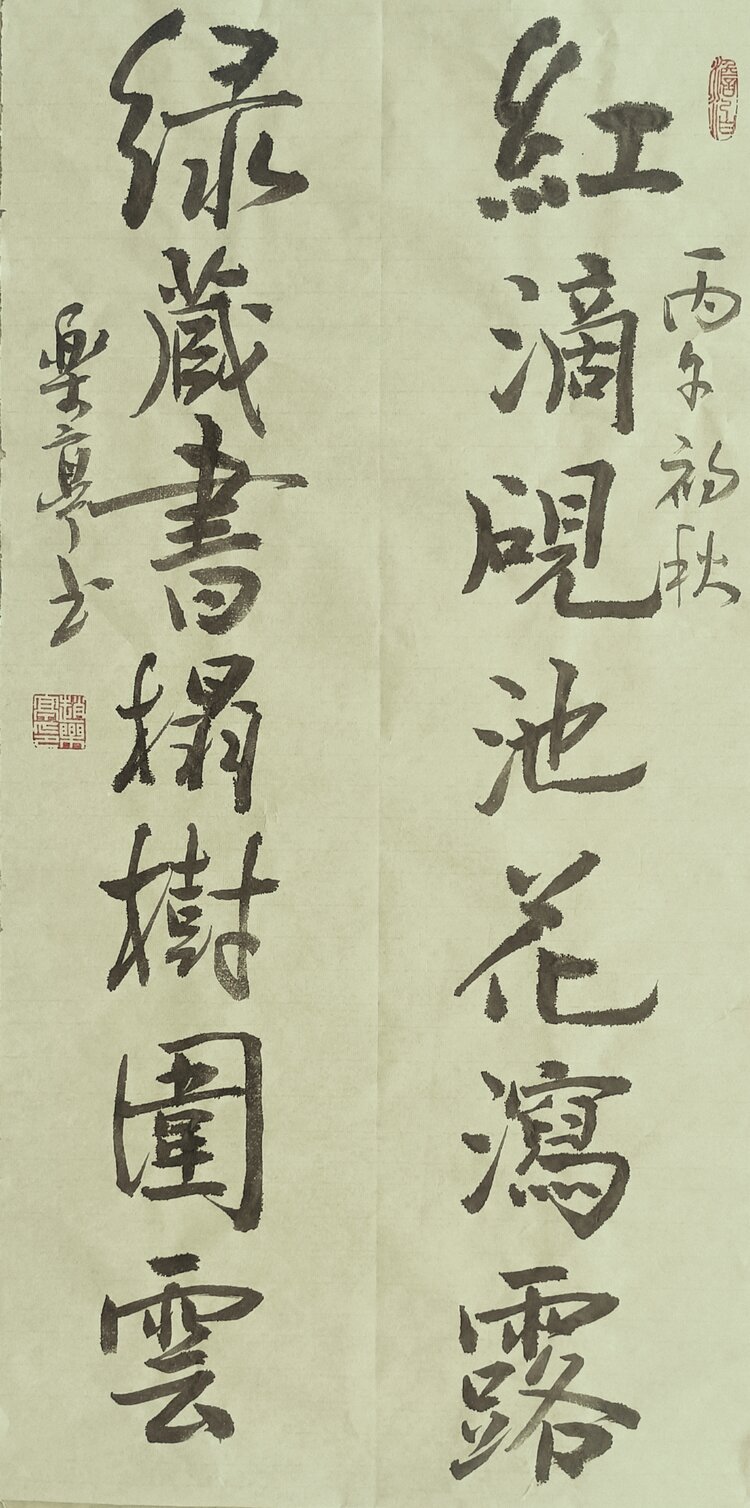 丙午初秋
紅滴硯池花瀉露
緑藏書榻樹圍雲
樂亭书